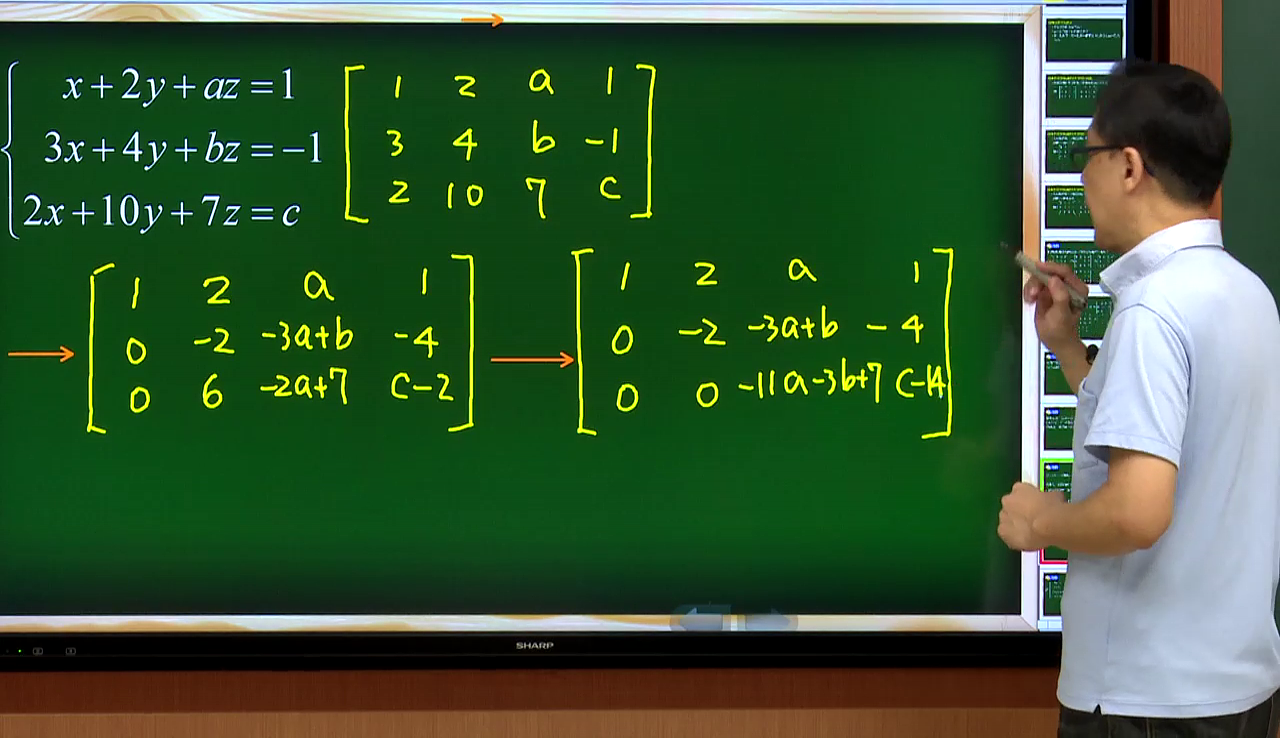 x+2y+az=1
3x+4y+bz=-1
2x+10y+7z=c
1 2 a 1
3 4 b -1
2 10 7 c
1 2 a 1
0 -2 -3a+b -4
0 6 -2a+7 c-2
1 2 a 1
0 -2 -3a+b -4
0 0 -11a-3b+7 c-14
SHARP